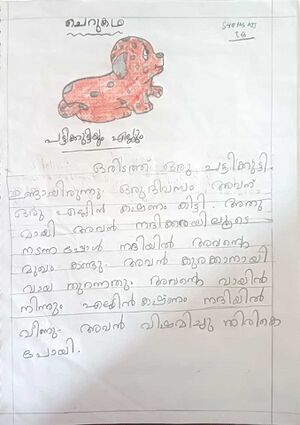 ചെറുകഥ
പട്ടിക്കുട്ടിയും എല്ലും
ഒരിടത്ത് ഒരു പട്ടിക്കുട്ടി
ഉണ്ടായിരുന്നു. ഒരു ദിവസം അവന്
ഒരു എല്ലിൻ കഷണം കിട്ടി. അതു
മായി അവൻ നദിക്കരയിലൂടെ
നടന്നപ്പോൾ നദിയിൽ അവന്റെ
മുഖം കണ്ടു. അവൻ കുരക്കാനായി
വായ തുറന്നതും അവന്റെ വായിൽ
നിന്നും എല്ലിൻ കഷണം നദിയിൽ
വീണു. അവൻ വിഷമിച്ചു തിരികെ
പോയി.